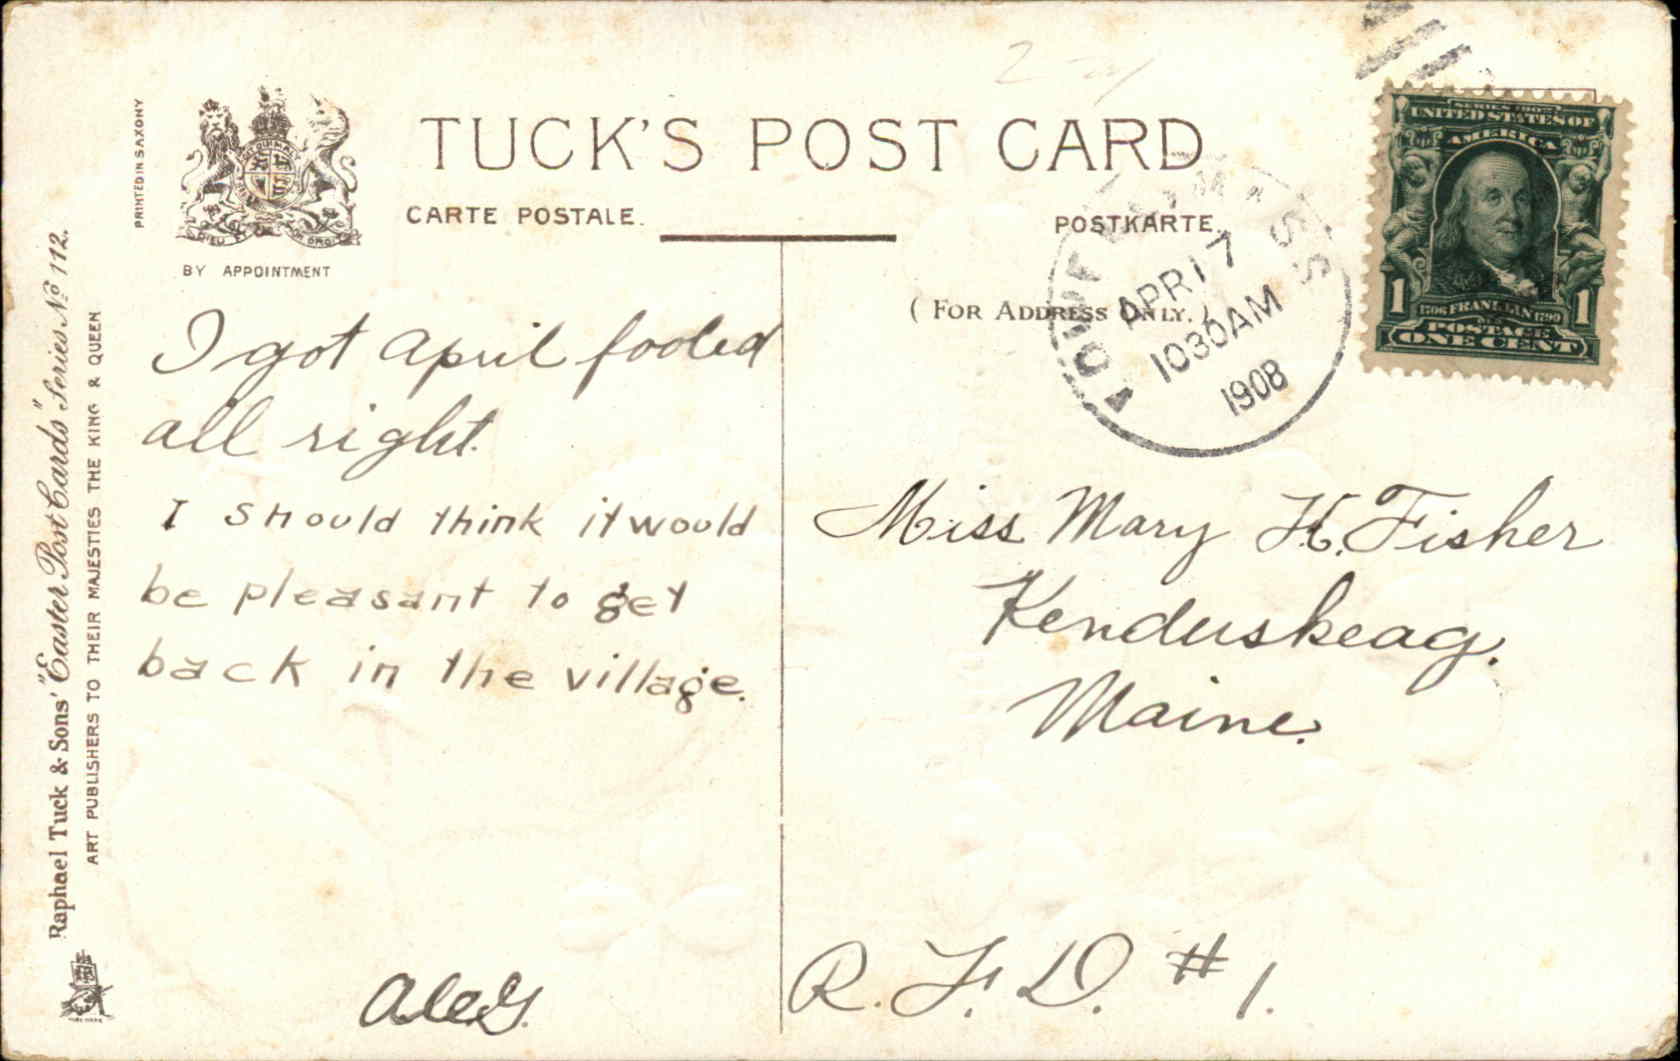 PRINTED IN SAXONY
DIEU ET MON DROIT
BY APPOINTMENT
TUCK'S POST CARD
CARTE POSTALE.
POSTKARTE.
(FOR ADDRESS ONLY.)
MASS
APR 17
1030AM
1908
SERIES 1902
UNITED STATES OF
AMERICA
1 1
1706 FRANKLIN 1790
POSTAGE
ONE CENT
Raphael Tuck & Sons' "Easter Post Cards" Series No 112.
ART PUBLISHERS TO THEIR MAJESTIES THE KING & QUEEN
I got April fooled
all right.
I should think it would
be pleasant to get
back in the village.
Miss Mary H. Fisher
Kenduskeag.
Maine.
R. F. D. # 1.